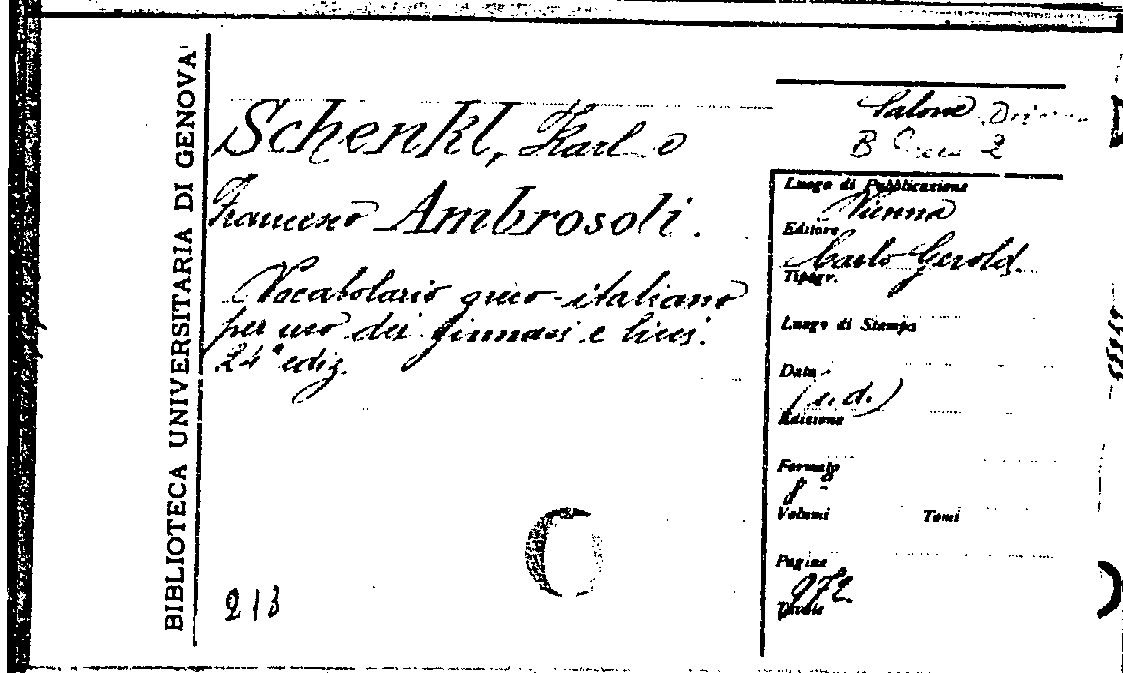 BIBLIOTECA UNIVERSITARIA DI GENOVA'
Schenkl, Karl e
Francesco Ambrosoli.
Vocabolario greco-italiano
per uso dei ginnasi e licei.
24ª ediz.
213
Salone
B 2
Luogo di Pubblicazione
Vienna
Editore
Carlo Gerold.
Tipogr.
Luogo di Stampa
Data
(s.d.)
Edizione
Formato
8°
Volumi Tomi
Pagine
972
Tavole